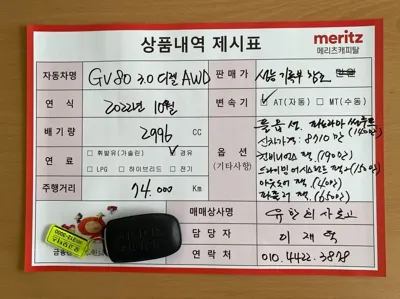 상품내역 제시표
meritz
메리츠캐피탈
자동차명 GV80 3.0 디젤 AWD 판매가 성능기록부 참고
연 식 2022년 10월 변속기 ☑ AT(자동) □ MT(수동)
배기량 2996 CC
옵 션
(기타사항)
풀옵션. 파노라마 썬루프 (140만)
신차가격: 8710만
컨비니언스 팩 (190만)
드라이빙 어시스턴트 팩2 (150만)
아웃도어 팩 (40만)
파퓰러 팩 (650만)
연 료 □ 휘발유(가솔린) ☑ 경유
□ LPG □ 하이브리드 □ 전기
주행거리 74.000 Km
매매상사명
담 당 자 이재
연 락 처 010.4422.3828